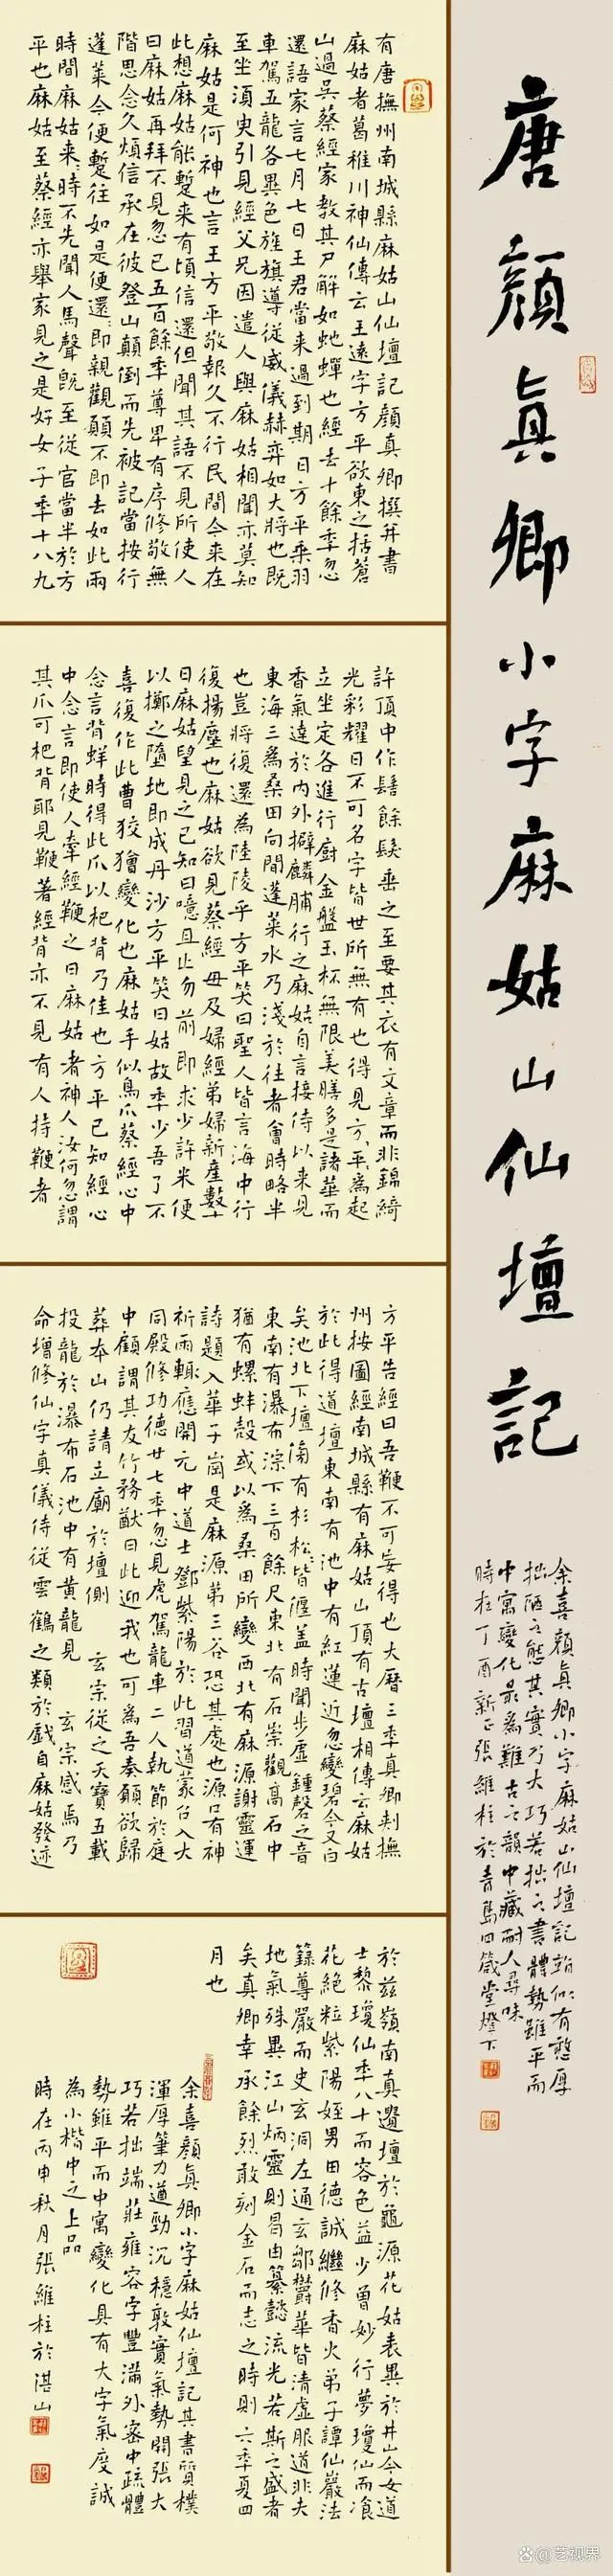 唐顏真卿小字麻姑山仙壇記
余喜顏真卿小字麻姑山仙壇記貌似有憨厚
拙陋之態其實乃大巧若拙之書體勢雖平而
中寓變化最為難古之韻中藏耐人尋味
時在丁酉新正張維柱於青島四箴堂燈下
有唐撫州南城縣麻姑山仙壇記顏真卿撰并書
麻姑者葛稚川神仙傳云王遠字方平欲東之括蒼
山過吳蔡經家教其尸解如虵蟬也經去十餘季忽
還語家言七月七日王君當来過到期日方平乘羽
車駕五龍各異色旌旗導從威儀赫弈如大將也既
至坐須臾引見經父兄因遣人與麻姑相聞亦莫知
麻姑是何神也言王方平敬報久不行民間今来在
此想麻姑能蹔来有頃信還但聞其語不見所使人
曰麻姑再拜不見忽已五百餘季尊卑有序修敬無
階思念久煩信承在彼登山顛倒而先被記當按行
蓬莱今便蹔往如是便還即親觀願不即去如此兩
時間麻姑来時不先聞人馬聲既至從官當半於方
平也麻姑至蔡經亦舉家見之是好女子季十八九
許頂中作髻餘髮垂之至要其衣有文章而非錦綺
光彩耀日不可名字皆世所無有也得見方平為起
立坐定各進行廚金盤玉杯無限美膳多是諸華而
香氣達於内外擗麟脯行之麻姑自言接侍以来見
東海三為桑田向間蓬莱水乃淺於往者會時略半
也豈將復還為陸陵乎方平笑曰聖人皆言海中行
復揚塵也麻姑欲見蔡經母及婦經弟婦新產數十
日麻姑望見之已知曰噫且止勿前即求少許米便
以擲之墮地即成丹沙方平笑曰姑故季少吾了不
喜復作此曹狡獪變化也麻姑手似鳥爪蔡經心中
念言背蛘時得此爪以杷背乃佳也方平已知經心
中念言即使人牽經鞭之曰麻姑者神人汝何忽謂
其爪可杷背耶見鞭著經背亦不見有人持鞭者
方平告經曰吾鞭不可妄得也大曆三季真卿刺撫
州按圖經南城縣有麻姑山頂有古壇相傳云麻姑
於此得道壇東南有池中有紅蓮近忽變碧今又白
矣池北下壇傍有杉松皆偃盖時聞步虛鍾磬之音
東南有瀑布淙下三百餘尺東北有石崇觀高石中
猶有螺蚌殼或以為桑田所變西北有麻源謝靈運
詩題入華子崗是麻源第三谷恐其處也源口有神
祈雨輒應開元中道士鄧紫陽於此習道蒙召入大
同殿修功德廿七季忽見虎駕龍車二人執節於庭
中顧謂其友竹務猷曰此迎我也可為吾奏願欲歸
葬本山仍請立廟於壇側 玄宗從之天寶五載
投龍於瀑布石池中有黃龍見 玄宗感焉乃
命增修仙宇真儀侍從雲鶴之類於戲自麻姑發迹
於兹嶺南真遺壇於龜源花姑表異於井山今女道
士黎瓊仙季八十而容色益少曾妙行夢瓊仙而飡
花絕粒紫陽姪男曰德誠繼修香火弟子譚仙巖法
籙尊嚴而史玄洞左通玄鄒鬱華皆清虛服道非夫
地氣殊異江山炳靈則曷由纂懿流光若斯之盛者
矣真卿幸承餘烈敢刻金石而志之時則六季夏四
月也
余喜顏真卿小字麻姑仙壇記其書質樸
渾厚筆力遒勁沉穩敦實氣勢開張大
巧若拙端莊雍容字豐滿外密中疏體
勢雖平而中寓變化具有大字氣度誠
為小楷中之上品
時在丙申秋月張維柱於湛山
@艺视界